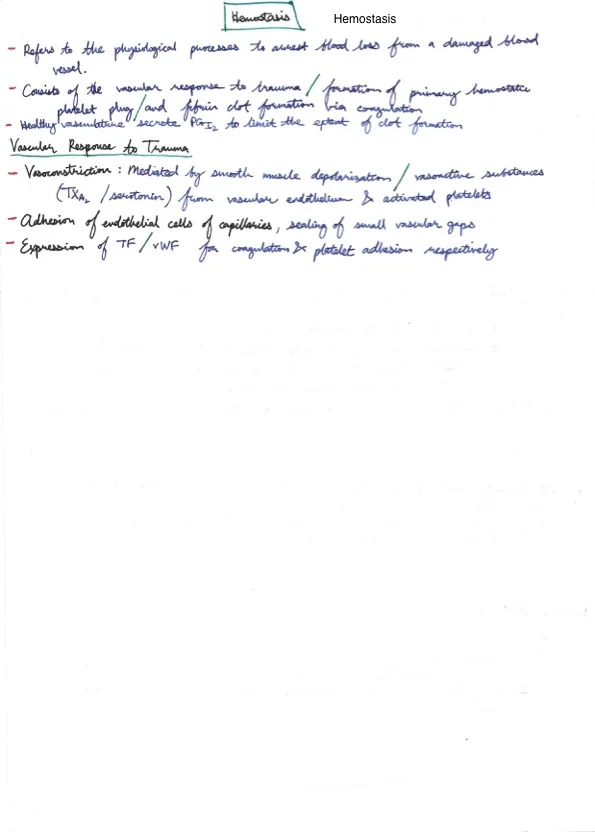 Hemostasis Hemostasis
- Refers to the physiological processes to arrest blood loss from a damaged blood
vessel.
- Consists of the vascular response to trauma / formation of primary hemostatic
platelet plug / and fibrin clot formation via coagulation
- Healthy vasculature secrete PGI2 to limit the extent of clot formation
Vascular Response to Trauma
- Vasoconstriction : Mediated by smooth muscle depolarization / vasoactive substances
(TXA2 / serotonin) from vascular endothelium & activated platelets
- Adhesion of endothelial cells of capillaries, sealing of small vascular gaps
- Expression of TF / vWF for coagulation & platelet adhesion respectively